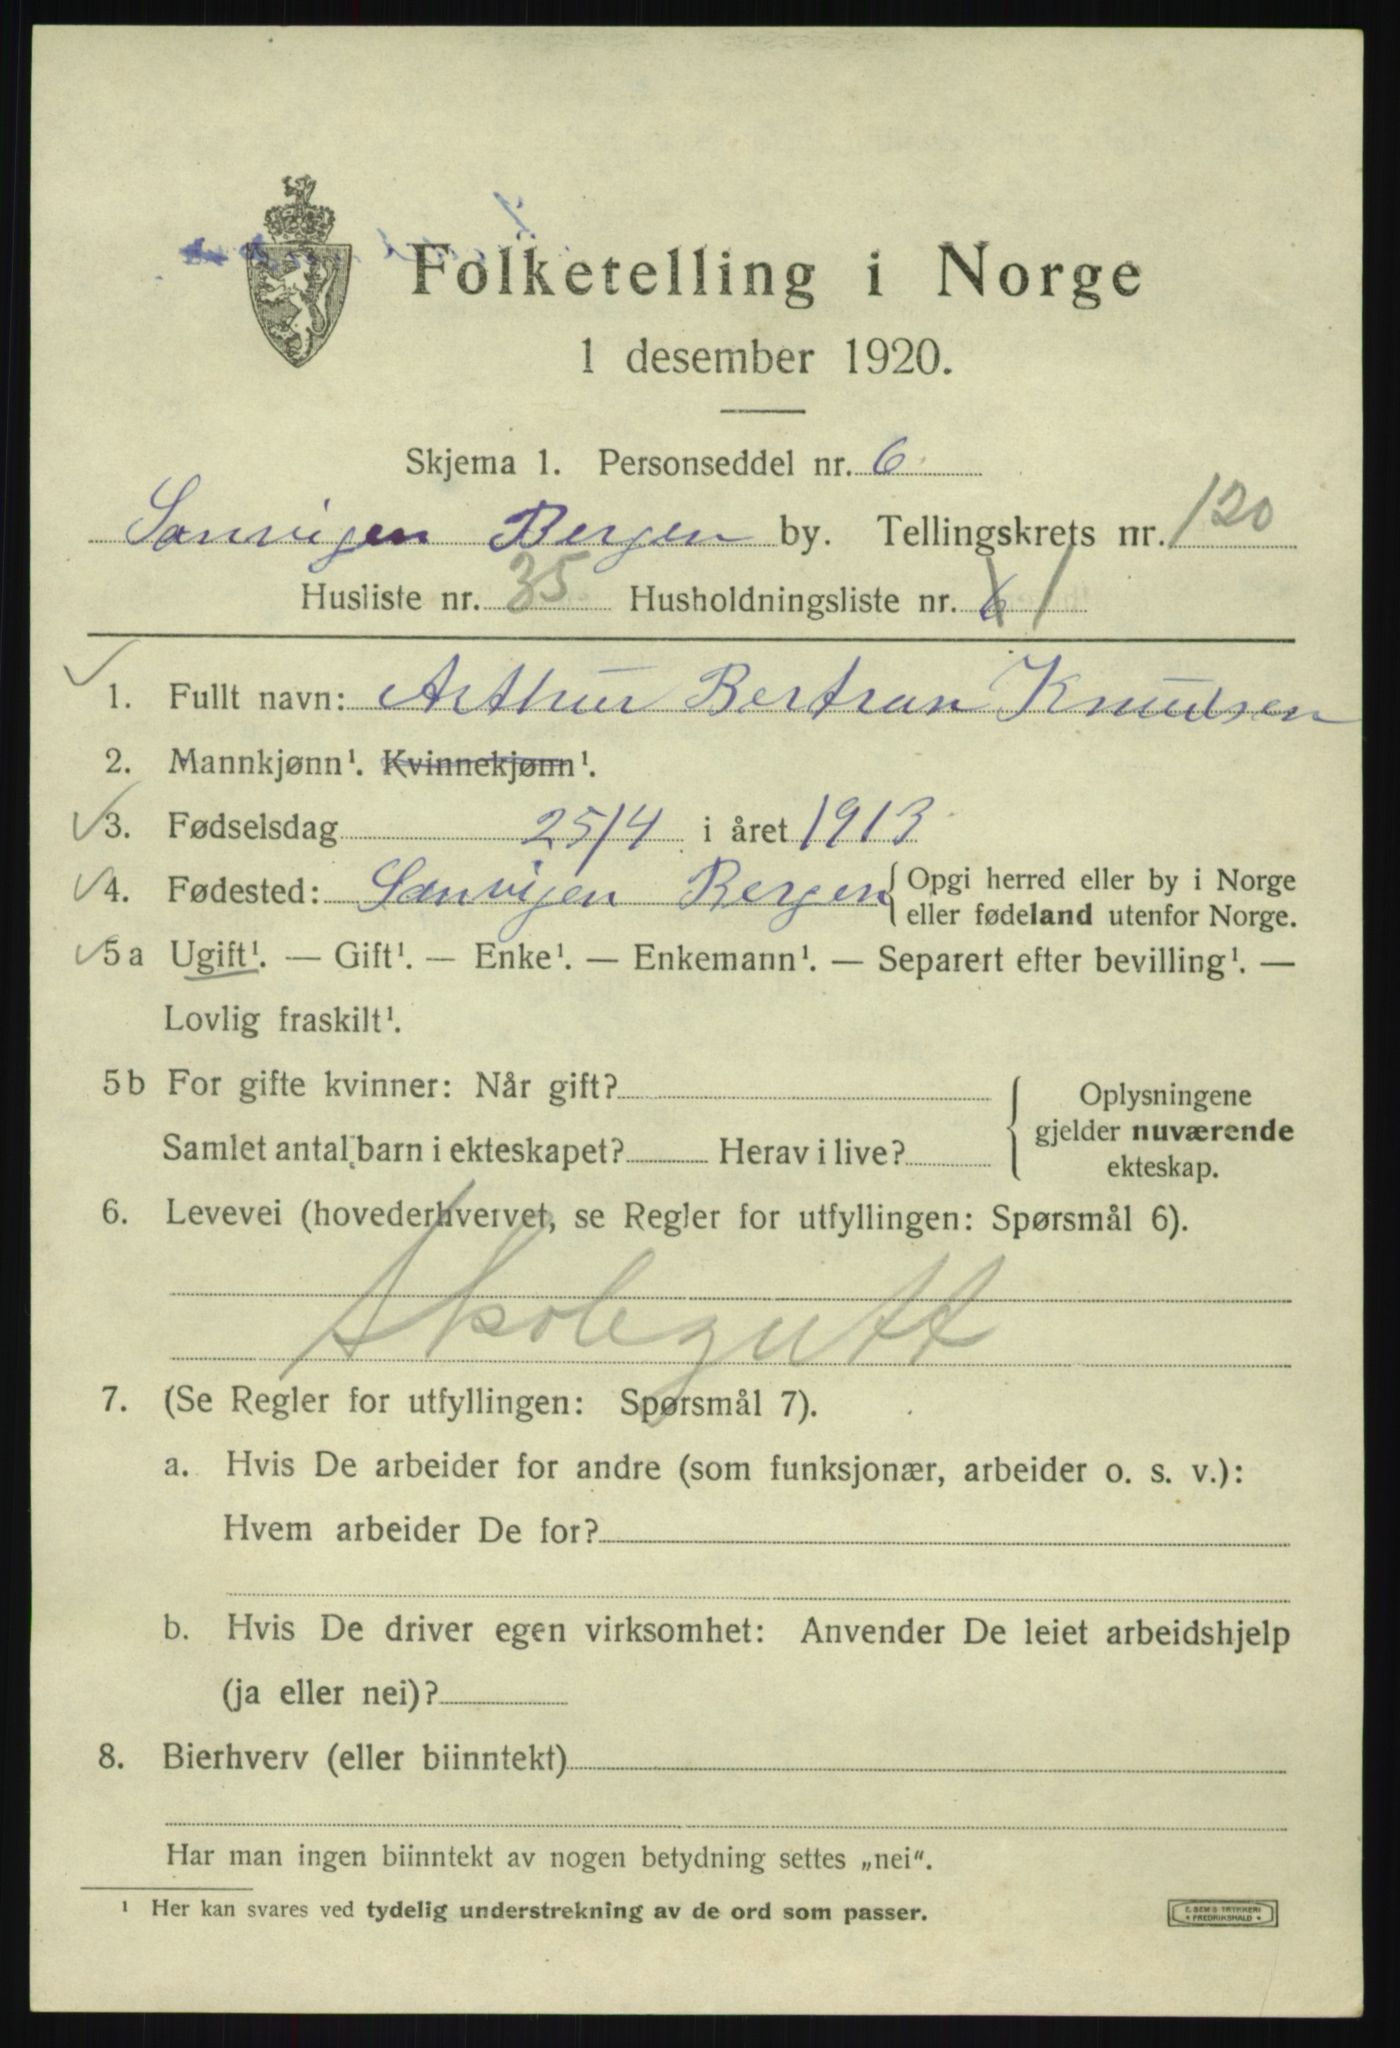 Folketelling i Norge
1 desember 1920.
Skjema 1. Personseddel nr. 6
Sanvigen Bergen by. Tellingskrets nr. 120
Husliste nr. 35 Husholdningsliste nr. 6 1
1. Fullt navn: Arthur Bertran Knudsen
2. Mannkjønn¹. Kvinnekjønn¹.
3. Fødselsdag 25/4 i året 1913
4. Fødested: Sanvigen Bergen { Opgi herred eller by i Norge
eller fødeland utenfor Norge.
5a Ugift¹. — Gift¹. — Enke¹. — Enkemann¹. — Separert efter bevilling¹. —
Lovlig fraskilt¹.
5b For gifte kvinner: Når gift? { Oplysningene
gjelder nuværende
Samlet antal barn i ekteskapet? Herav i live?
ekteskap.
6. Levevei (hovederhvervet, se Regler for utfyllingen: Spørsmål 6).
Skolegutt
7. (Se Regler for utfyllingen: Spørsmål 7).
a. Hvis De arbeider for andre (som funksjonær, arbeider o. s. v.):
Hvem arbeider De for?
b. Hvis De driver egen virksomhet: Anvender De leiet arbeidshjelp
(ja eller nei)?
8. Bierhverv (eller biinntekt)
Har man ingen biinntekt av nogen betydning settes „nei“.
¹ Her kan svares ved tydelig understrekning av de ord som passer.
E. SEM'S TRYKKERI
• FREDRIKSHALD •